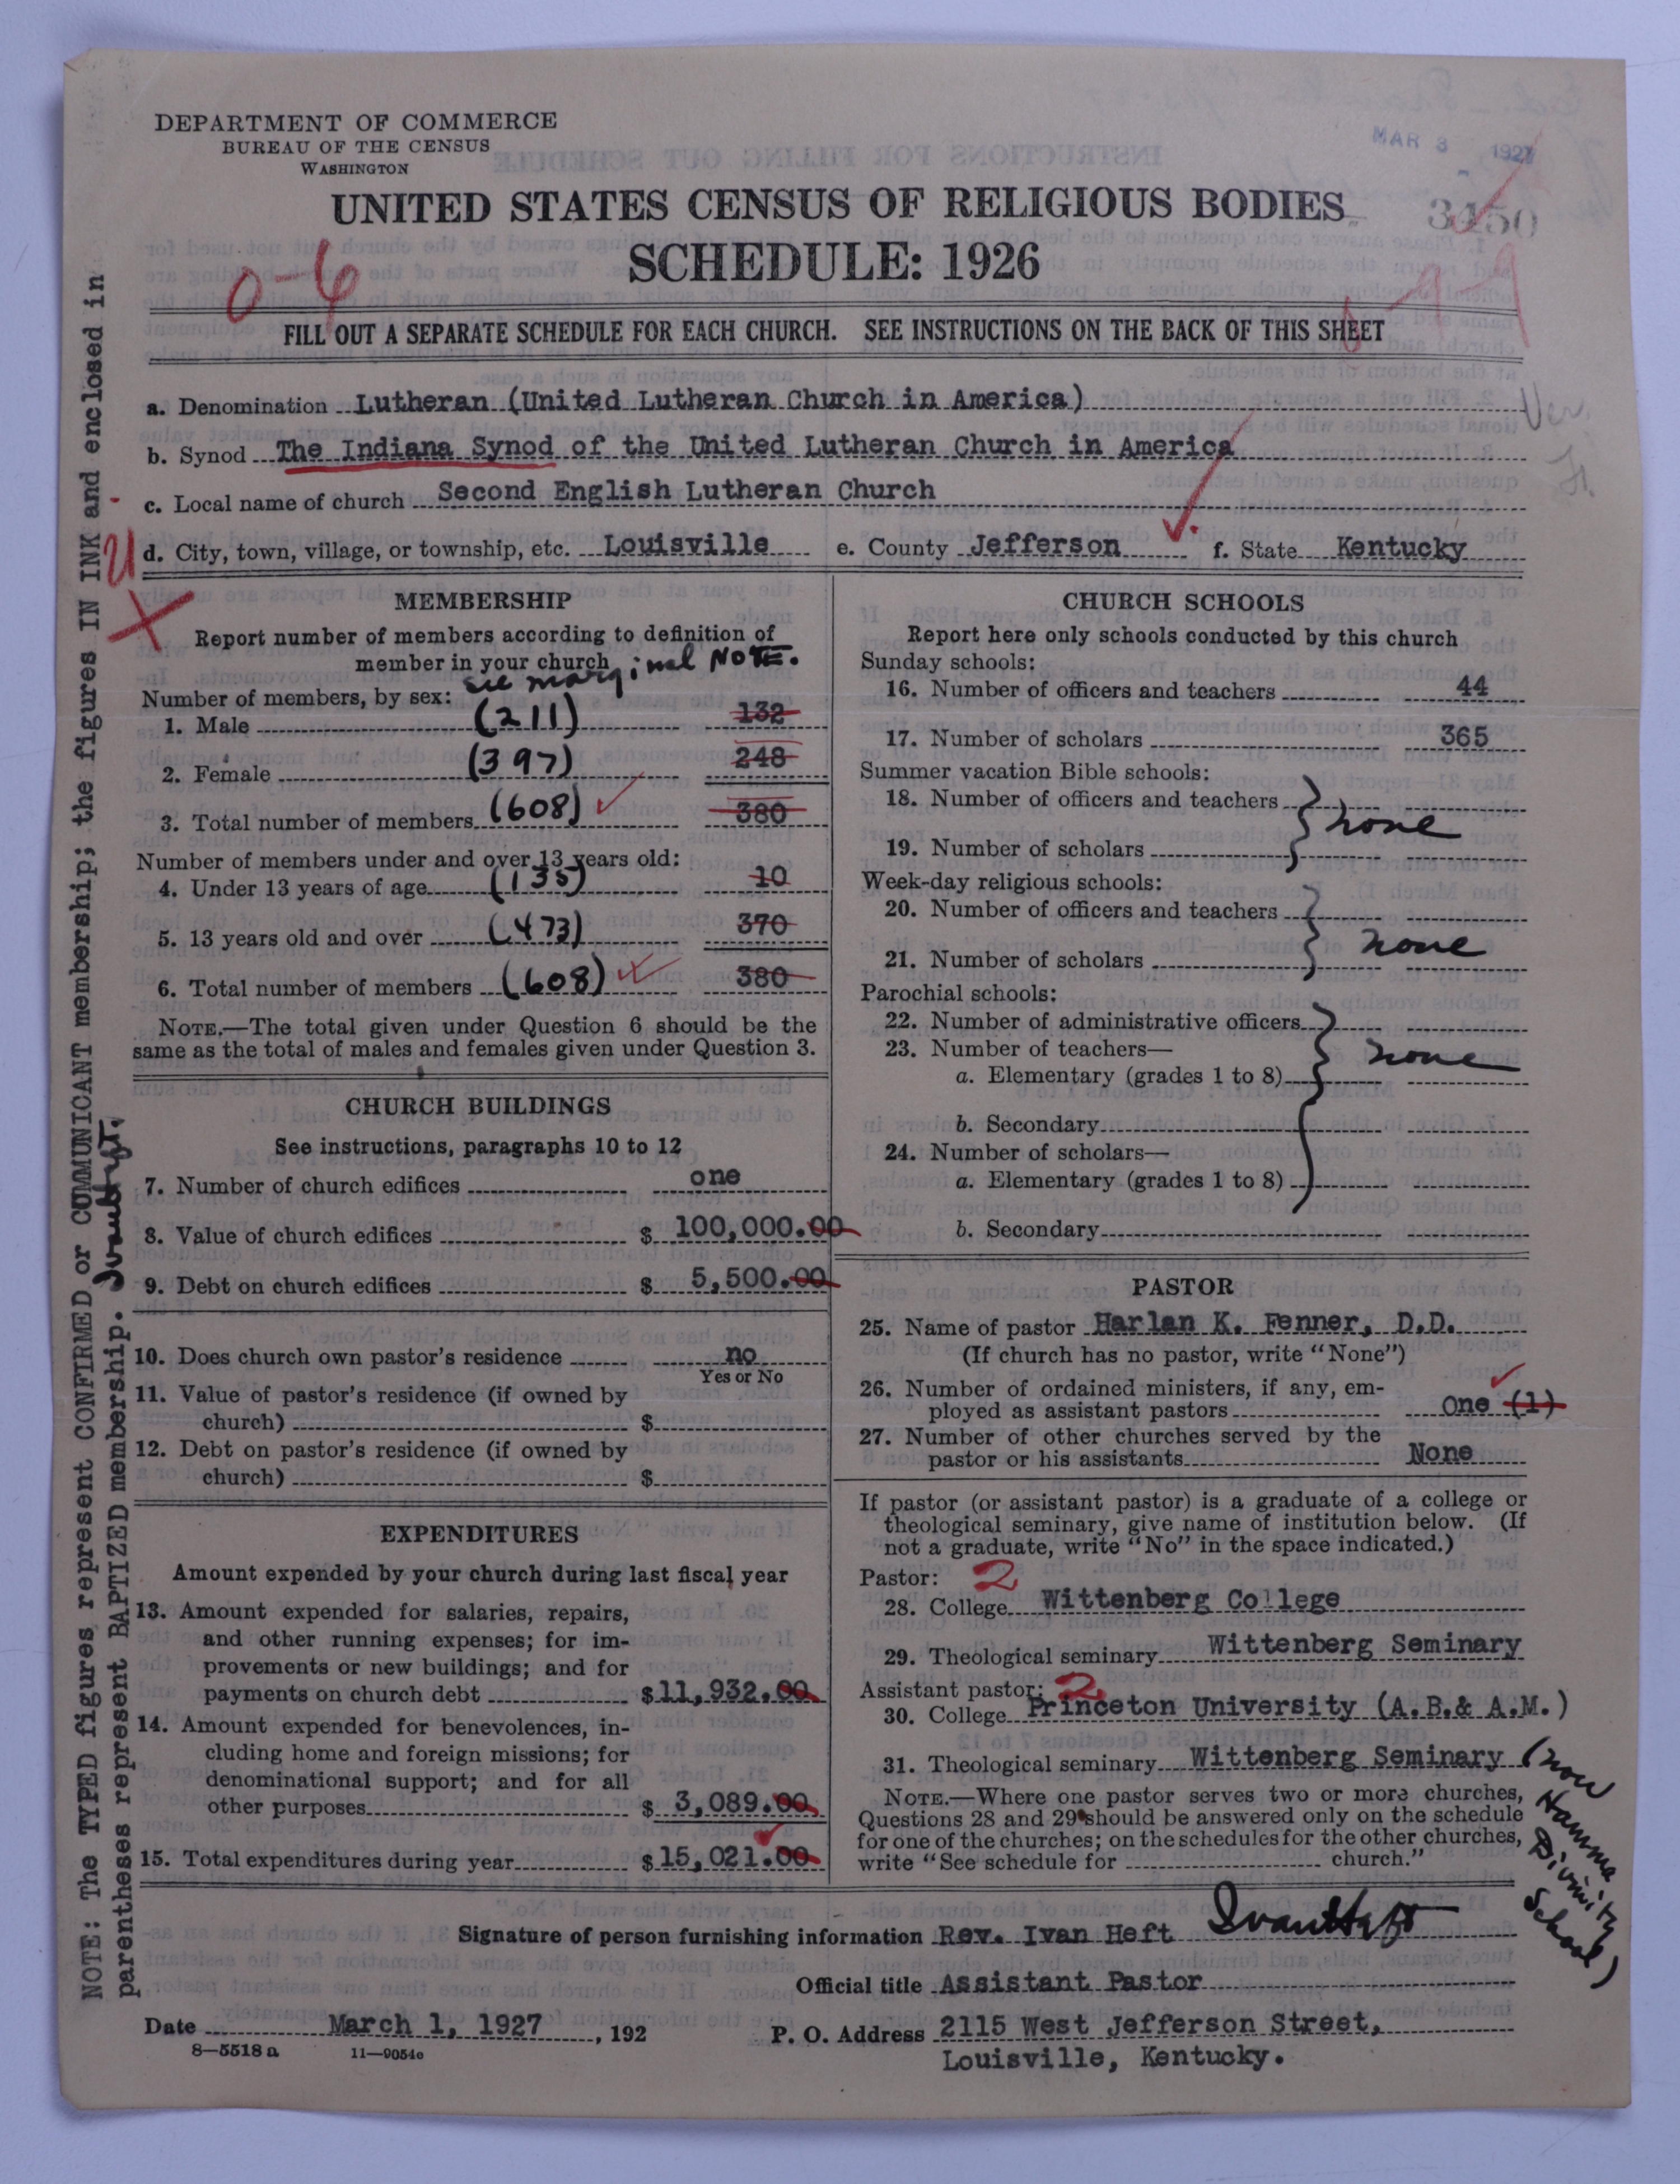 DEPARTMENT OF COMMERCE
BUREAU OF THE CENSUS
WASHINGTON
MAR 3 1927
UNITED STATES CENSUS OF RELIGIOUS BODIES
3450
SCHEDULE: 1926
0-6
FILL OUT A SEPARATE SCHEDULE FOR EACH CHURCH. SEE INSTRUCTIONS ON THE BACK OF THIS SHEET
a. Denomination Lutheran (United Lutheran Church in America)
b. Synod The Indiana Synod of the United Lutheran Church in America
c. Local name of church Second English Lutheran Church
d. City, town, village, or township, etc. Louisville e. County Jefferson f. State Kentucky
MEMBERSHIP
Report number of members according to definition of
member in your church
see marginal NOTE.
Number of members, by sex:
1. Male (211) 132
2. Female (397) 248
3. Total number of members (608) 380
Number of members under and over 13 years old:
4. Under 13 years of age (135) 10
5. 13 years old and over (473) 370
6. Total number of members (608) 380
NOTE.—The total given under Question 6 should be the
same as the total of males and females given under Question 3.
CHURCH BUILDINGS
See instructions, paragraphs 10 to 12
7. Number of church edifices one
8. Value of church edifices $ 100,000.00
9. Debt on church edifices $ 5,500.00
10. Does church own pastor's residence no
Yes or No
11. Value of pastor's residence (if owned by
church) $
12. Debt on pastor's residence (if owned by
church) $
EXPENDITURES
Amount expended by your church during last fiscal year
13. Amount expended for salaries, repairs,
and other running expenses; for im-
provements or new buildings; and for
payments on church debt $11,932.00
14. Amount expended for benevolences, in-
cluding home and foreign missions; for
denominational support; and for all
other purposes $ 3,089.00
15. Total expenditures during year $15,021.00
CHURCH SCHOOLS
Report here only schools conducted by this church
Sunday schools:
16. Number of officers and teachers 44
17. Number of scholars 365
Summer vacation Bible schools:
18. Number of officers and teachers
none
19. Number of scholars
Week-day religious schools:
20. Number of officers and teachers
none
21. Number of scholars
Parochial schools:
22. Number of administrative officers
23. Number of teachers—
none
a. Elementary (grades 1 to 8)
b. Secondary
24. Number of scholars—
a. Elementary (grades 1 to 8)
b. Secondary
PASTOR
25. Name of pastor Harlan K. Fenner, D.D.
(If church has no pastor, write "None")
26. Number of ordained ministers, if any, em-
ployed as assistant pastors one (1)
27. Number of other churches served by the
pastor or his assistants None
If pastor (or assistant pastor) is a graduate of a college or
theological seminary, give name of institution below. (If
not a graduate, write "No" in the space indicated.)
Pastor: 2
28. College Wittenberg College
29. Theological seminary Wittenberg Seminary
Assistant pastor: 2
30. College Princeton University (A.B.& A.M.)
31. Theological seminary Wittenberg Seminary (now
Hamma
Divinity
School)
NOTE.—Where one pastor serves two or more churches,
Questions 28 and 29 should be answered only on the schedule
for one of the churches; on the schedules for the other churches,
write "See schedule for church."
Signature of person furnishing information Rev. Ivan Heft Ivan Heft
Official title Assistant Pastor
Date March 1, 1927, 192 P. O. Address 2115 West Jefferson Street,
Louisville, Kentucky.
8—5518 a 11—9054c
NOTE: The TYPED figures represent CONFIRMED or COMMUNICANT membership; the figures IN INK and enclosed in
parentheses represent BAPTIZED membership. Ivan Heft.